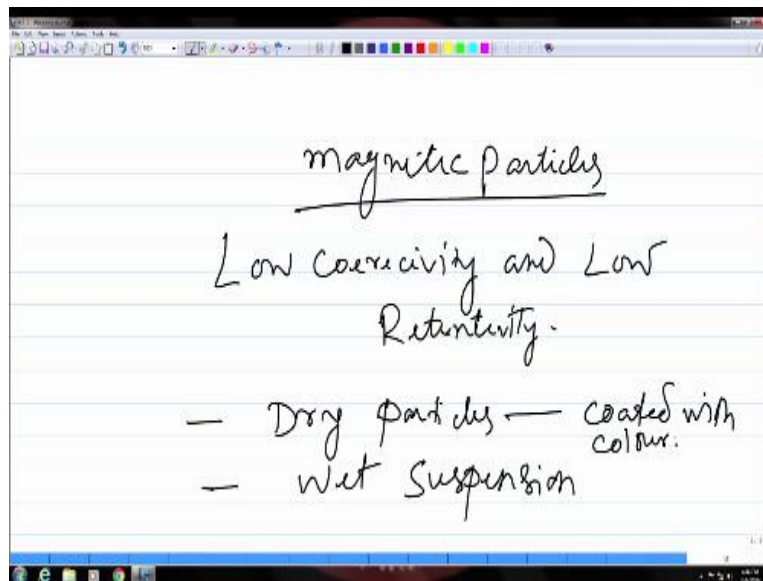 magnitic particles
Low Coerecivity and Low
Retentivity.
— Dry particles — coated with
colour.
— Wet Suspension